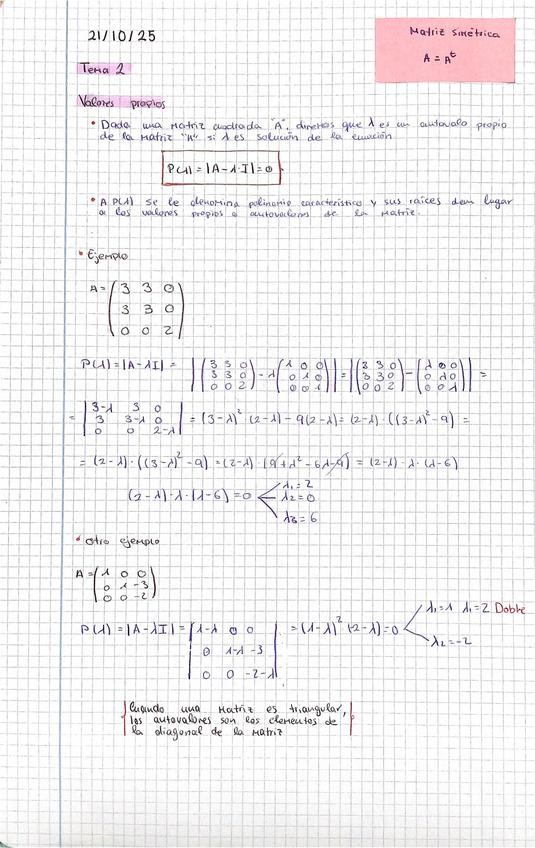 21/10/25
Matriz simétrica
A = Aᵗ
Tema 2
Valores propios
• Dada una matriz cuadrada "A", diremos que λ es un autovalo propio
de la matriz "A" si λ es solución de la ecuación
P(λ) = |A - λ·I| = 0
• A P(λ) se le denomina polinomio característico y sus raíces dan lugar
a los valores propios o autovalores de la matriz.
• Ejemplo
A = ( 3 3 0
3 3 0
0 0 2 )
P(λ) = |A - λI| = | ( 3 3 0 ; 3 3 0 ; 0 0 2 ) - λ ( 1 0 0 ; 0 1 0 ; 0 0 1 ) | = | ( 3 3 0 ; 3 3 0 ; 0 0 2 ) - ( λ 0 0 ; 0 λ 0 ; 0 0 λ ) | =
= | 3-λ 3 0 ; 3 3-λ 0 ; 0 0 2-λ | = (3-λ)² (2-λ) - 9(2-λ) = (2-λ) · ((3-λ)² - 9) =
= (2-λ) · ((3-λ)² - 9) = (2-λ) · (9 + λ² - 6λ - 9) = (2-λ) · λ · (λ-6)
(2-λ) · λ · (λ-6) = 0
λ₁ = 2
λ₂ = 0
λ₃ = 6
• Otro ejemplo
A = ( 1 0 0
0 1 -3
0 0 -2 )
P(λ) = |A - λI| = | 1-λ 0 0 ; 0 1-λ -3 ; 0 0 -2-λ | = (1-λ)² (-2-λ) = 0
λ₁ = 1 λ₁ = 2 Doble
λ₂ = -2
Cuando una matriz es triangular,
los autovalores son los elementos de
la diagonal de la matriz